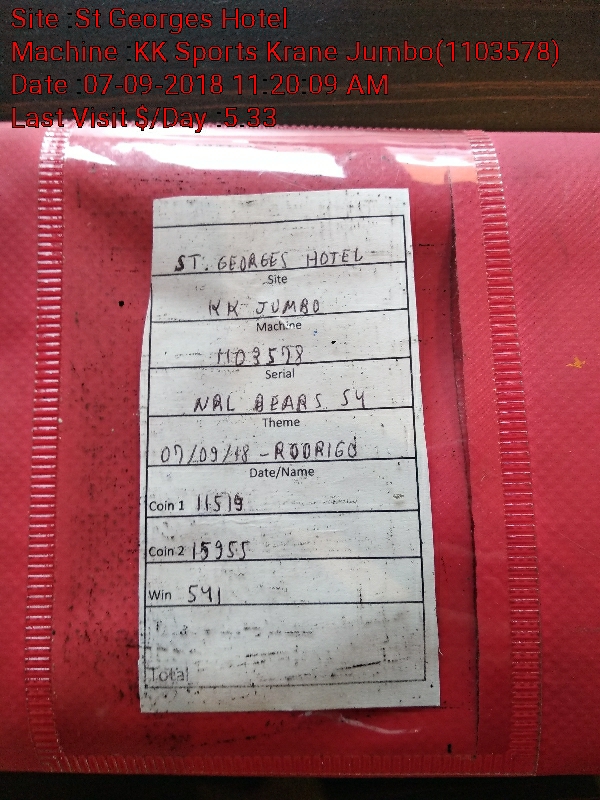 Site :St Georges Hotel
Machine :KK Sports Krane Jumbo(1103578)
Date :07-09-2018 11:20:09 AM
Last Visit $/Day :5.33
ST. GEORGES HOTEL
Site
KK JUMBO
Machine
1103578
Serial
NRL BEARS 54
Theme
07/09/18 - RODRIGO
Date/Name
Coin 1 11519
Coin 2 15955
Win 541
Total